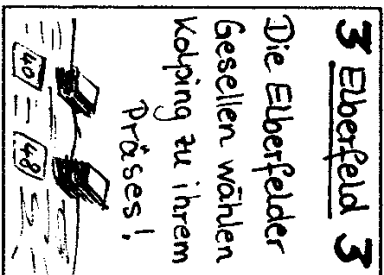 3 Elberfeld 3
Die Elberfelder
Gesellen wählen
Kolping zu ihrem
Präses!
40 - 48